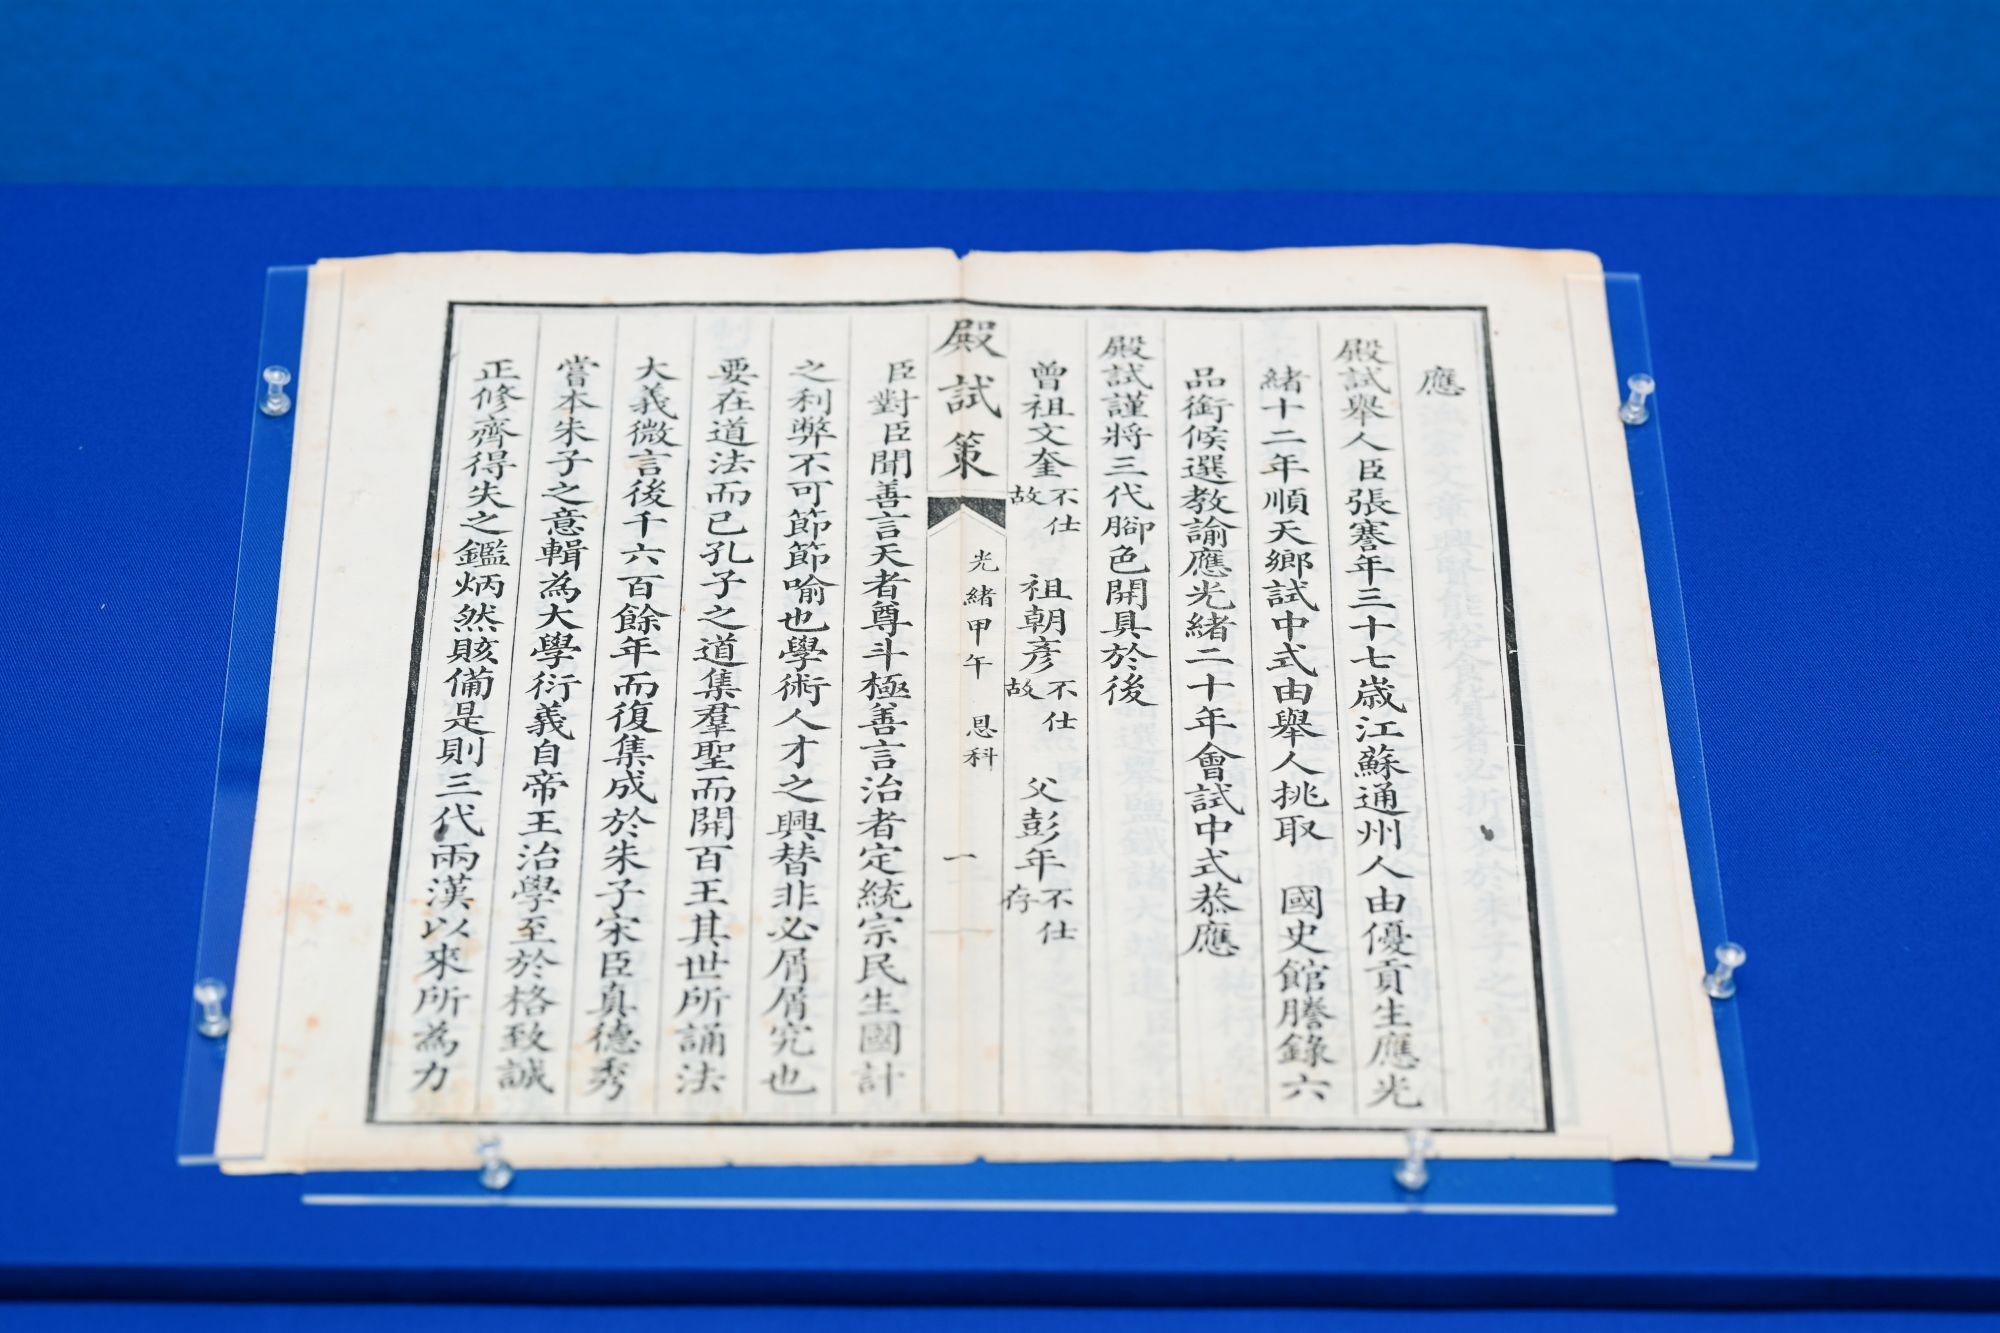 應
殿試舉人臣張謇年三十七歲江蘇通州人由優貢生應光
緒十二年順天鄉試中式由舉人挑取 國史館謄錄六
品銜候選教諭應光緒二十年會試中式恭應
殿試謹將三代腳色開具於後
曾祖文奎不仕故 祖朝彥不仕故 父彭年不仕存
殿試策 光緒甲午 恩科 一
臣對臣聞善言天者尊斗極善言治者定統宗民生國計
之利弊不可節節喻也學術人才之興替非必屑屑究也
要在道法而已孔子之道集羣聖而開百王其世所誦法
大義微言後千六百餘年而復集成於朱子宋臣真德秀
嘗本朱子之意輯為大學衍義自帝王治學至於格致誠
正修齊得失之鑑炳然賅備是則三代兩漢以來所為力